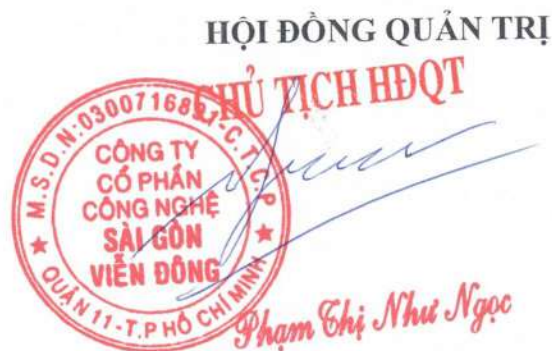 HỘI ĐỒNG QUẢN TRỊ
CHỦ TỊCH HĐQT
M.S.D.N:0300716891-C.T.C.P
CÔNG TY
CỔ PHẦN
CÔNG NGHỆ
SÀI GÒN
VIỄN ĐÔNG
QUẬN 11-T.P HỒ CHÍ MINH
Phạm Thị Như Ngọc